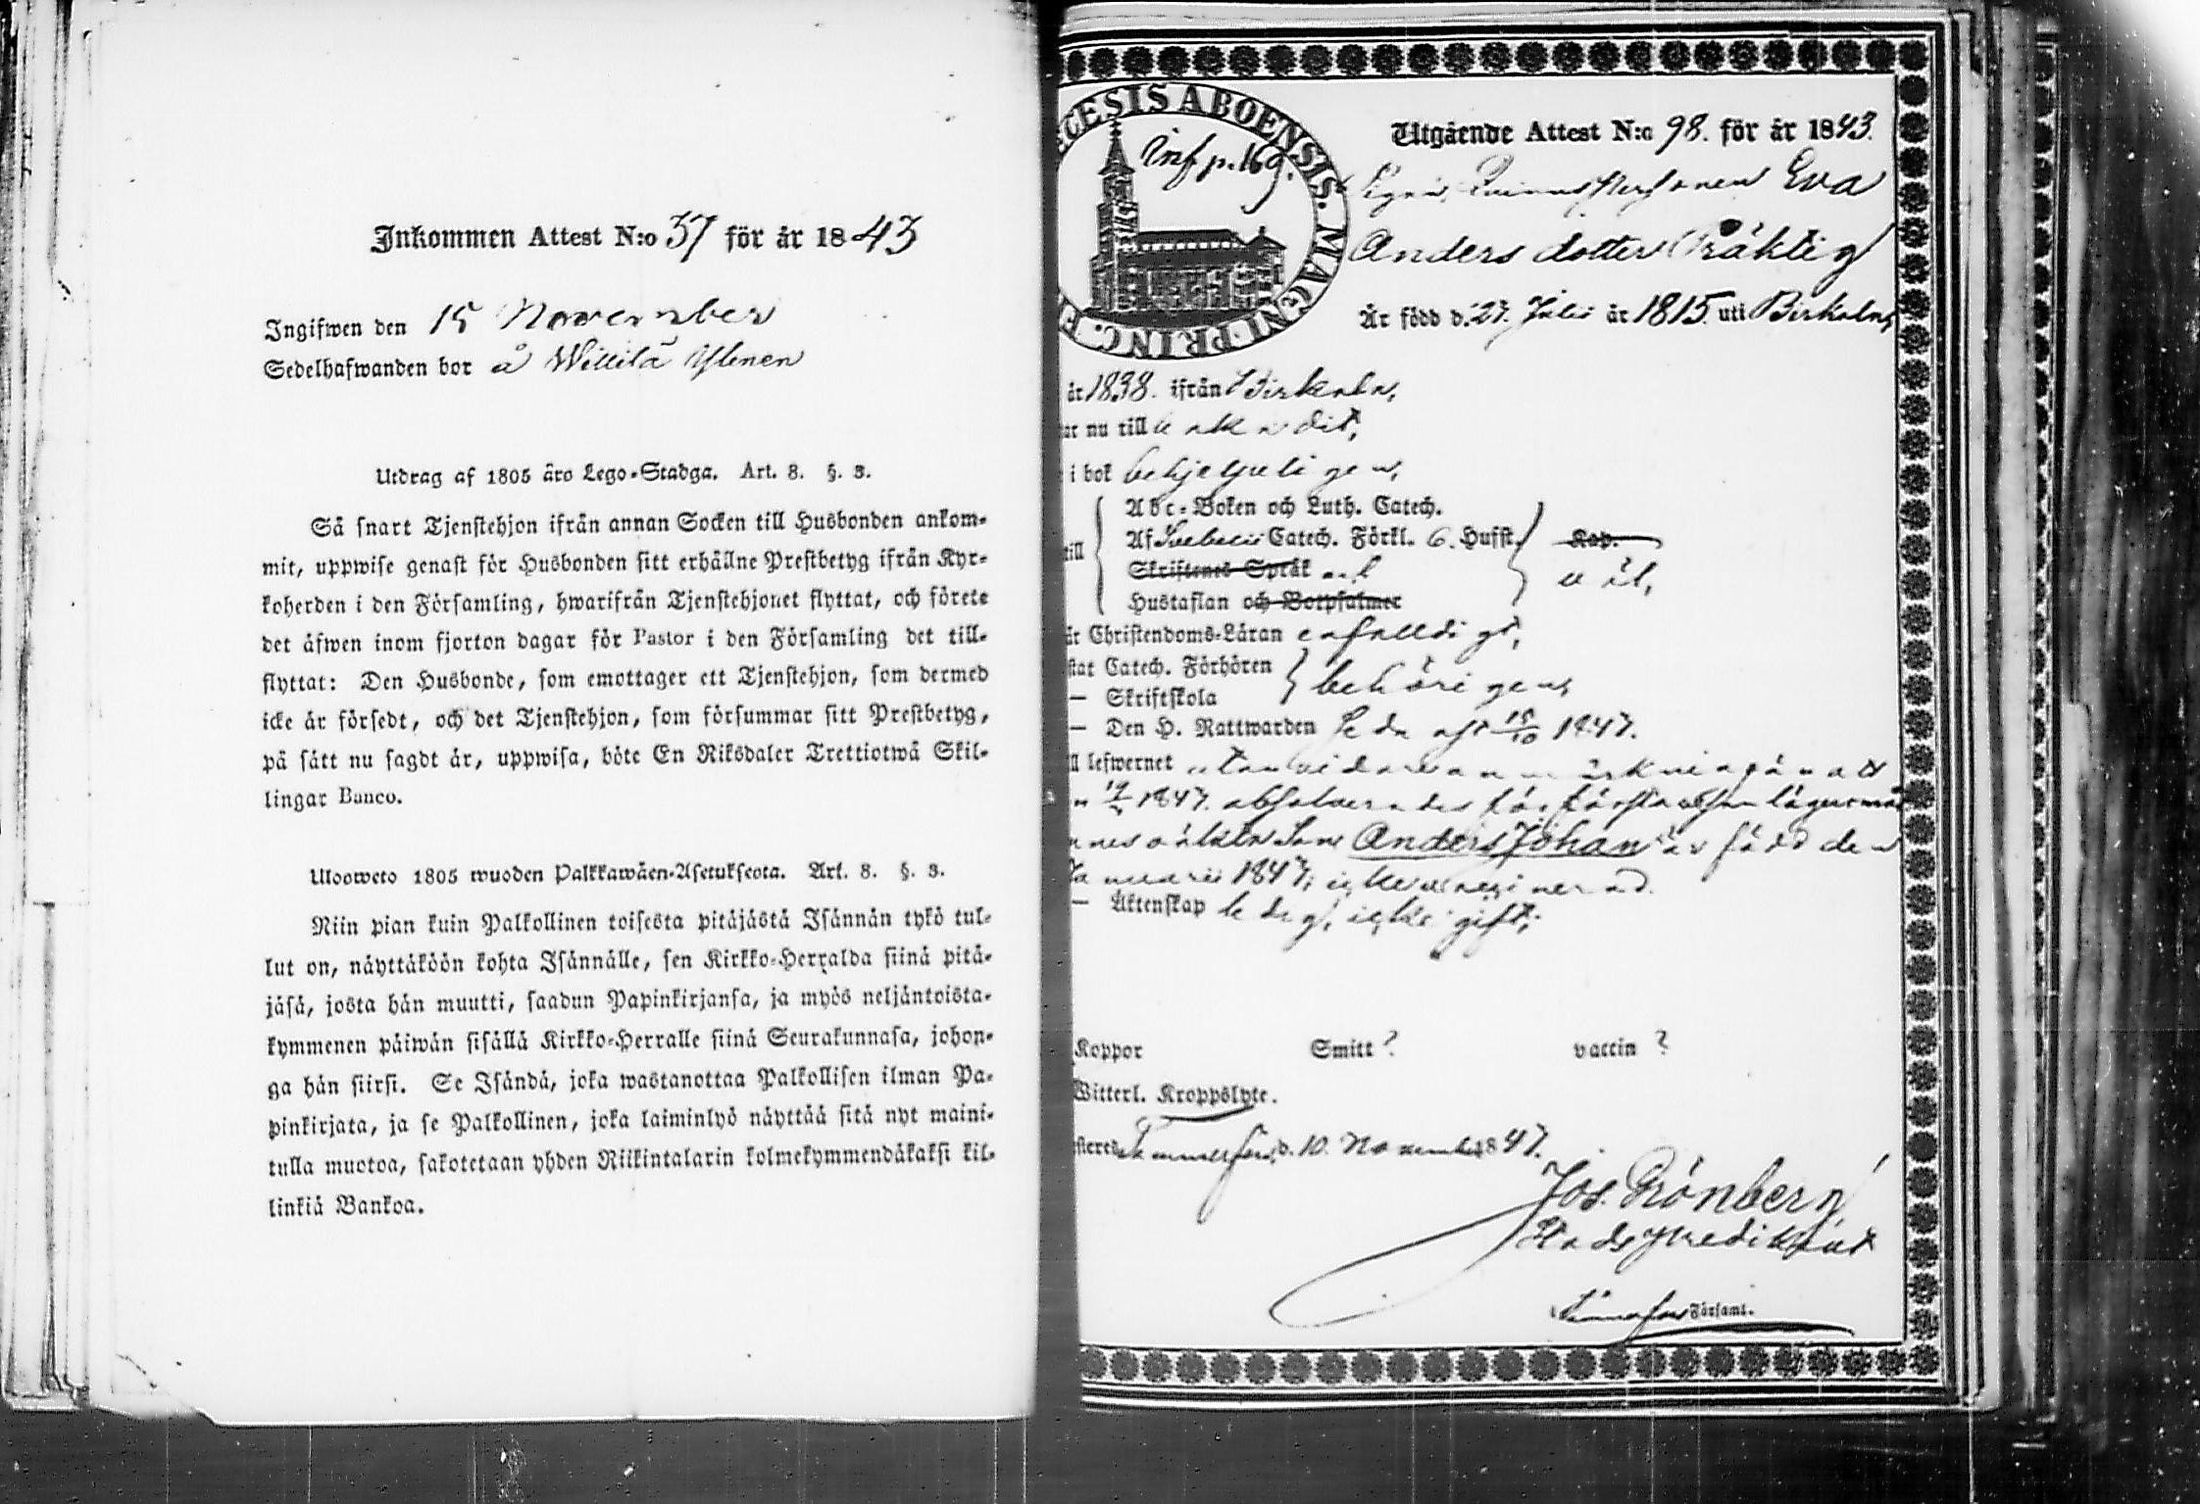 Inkommen Attest N:o 37 för år 1843
Ingifwen den 15 November
Sedelhafwanden bor å Willilä Yllenen
Utdrag af 1805 åro Lego-Stadga. Art. 8. §. 3.
Så snart Tjenstehjon ifrån annan Socken till Husbonden ankom-
mit, uppwise genast för Husbonden sitt erhållne Prestbetyg ifrån Kyr-
koherden i den Församling, hwarifrån Tjenstehjonet flyttat, och förete
det äfwen inom fjorton dagar för Pastor i den Församling det till-
flyttat: Den Husbonde, som emottager ett Tjenstehjon, som dermed
icke är försedt, och det Tjenstehjon, som försummar sitt Prestbetyg,
på sätt nu sagdt är, uppwisa, böte En Riksdaler Trettiotwå Skil-
lingar Banco.
Uloosweto 1805 wuoden Palkkawäen-Asetuksesta. Art. 8. §. 3.
Niin pian kuin Palkollinen toisesta pitäjästä Isännän tykö tul-
lut on, näyttäköön kohta Isännälle, sen Kirkko-Herralda siinä pitä-
jäsä, josta hän muutti, saadun Papinkirjansa, ja myös neljäntoista-
kymmenen päiwän sisällä Kirkko-Herralle siinä Seurakunnasa, johon-
ga hän siirsi. Se Isändä, joka wastanottaa Palkollisen ilman Pa-
pinkirjata, ja se Palkollinen, joka laiminlyö näyttää sitä nyt maini-
tulla muotoa, sakotetaan yhden Riikintalarin kolmekymmendäkaksi kil-
linkiä Bankoa.
ECESIS ABOENSIS. MAGNI PRINC. F
Inf p. 169.
Utgående Attest N:o 98. för år 1843.
Pigan, Qvinnspersonen Eva
Anders dotter Präktig
Är född d. 27. Julii år 1815. uti Birkala,
år 1838. ifrån Birkala,
ar nu till enahanda dit,
i bok behjelpeligen,
Abc-Boken och Luth. Catech.
till Af Svebelii Catech. Förkl. 6. Hufst. Kap.
Skriftenes Språk väl,
Hustaflan och Botpsalmer
är Christendoms-Läran enfalldigt,
stat Catech. Förhören behörigen,
— Skriftskola
— Den H. Nattwarden 1847.
ll lefwernet utan vidare anmärkning än att
1847. absolverades för första
oäkta Son Anders Johan är född den
Januarii 1847; icke vaccinerad.
— Äktenskap ledig, icke gift;
Koppor Smitt ? vaccin ?
Witterl. Kroppslyte.
steras Tammerfors, d. 10. November 1847.
Jos. Grönberg
Stadspredikant
i Tammerfors Församl.